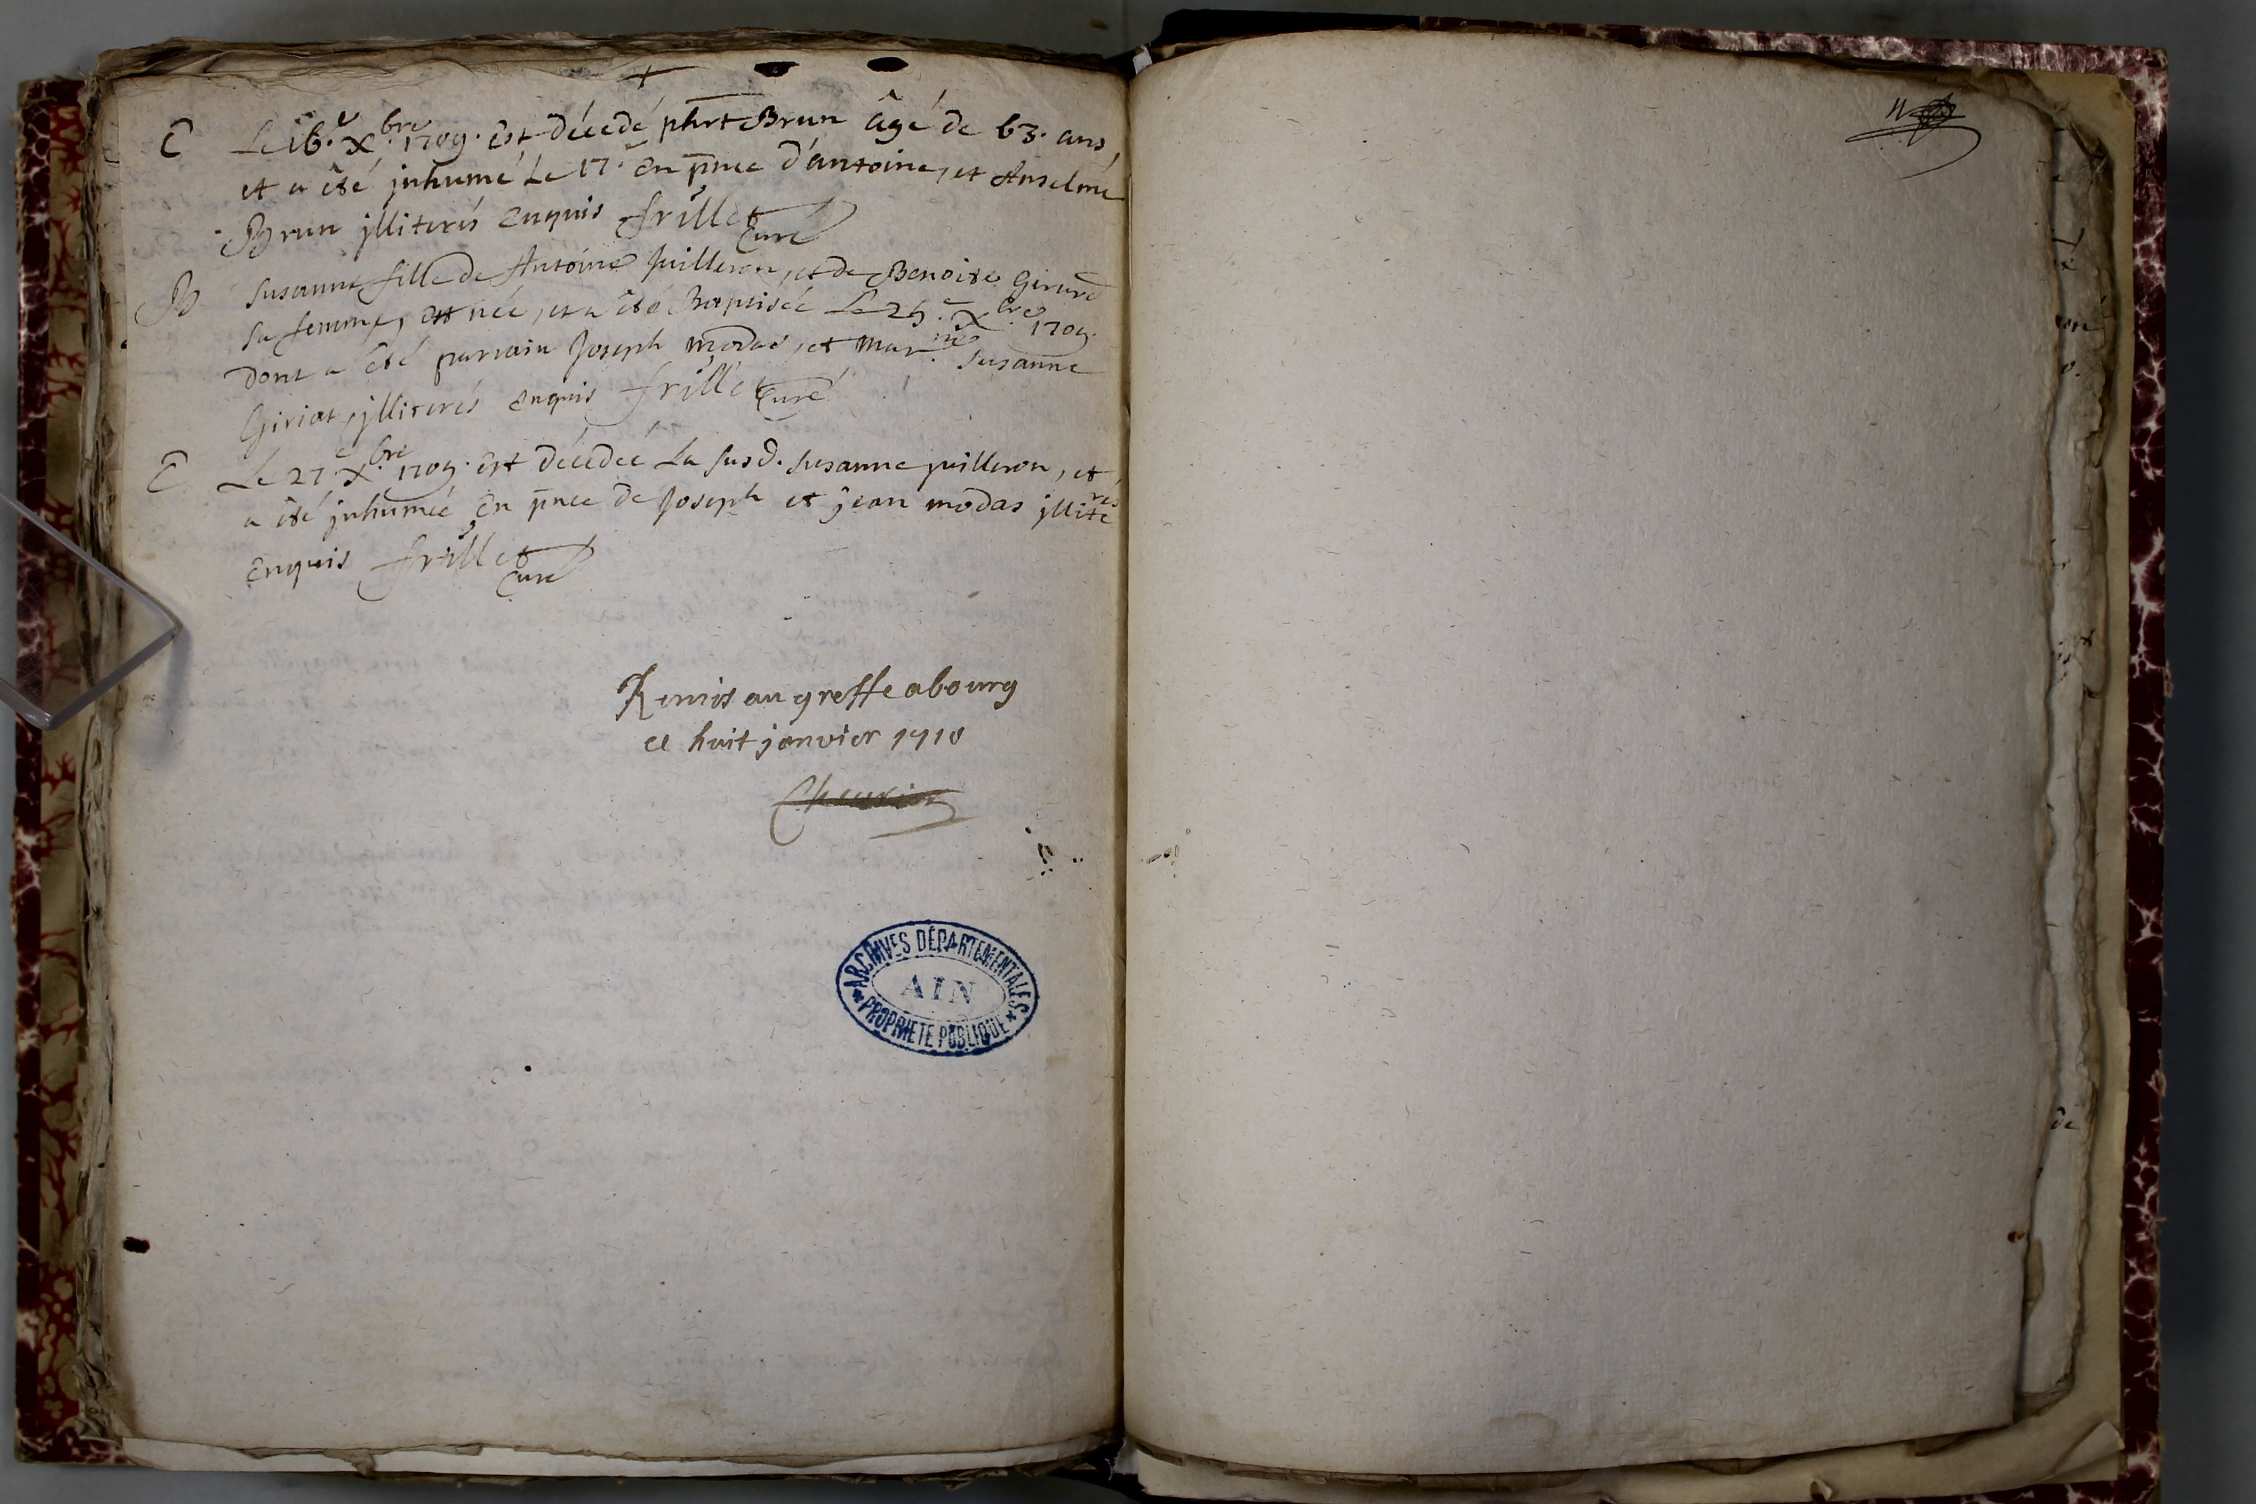 E Le 16.e Xbre. 1709. est décedé phrt Brun âgé de 63. ans
et a été jnhumé Le 17.e En p̄nce d'antoine, et Anselme
Brun jlliterés Enquis frillet
Curé
B Susanne fille de Antoine Juilleron, et de Benoite Girard
sa femme, est née, et a été Baptisée Le 25.e Xbre. 1709.
Dont a été parrain Joseph modas, et mar.ne susanne
Giriat, jlliterés Enquis frillet
Curé
E Le 27.e Xbre. 1709. est décedée La susd. susanne juilleron, et
a été jnhumée En p̄nce de Joseph et jean modas jllité
rés
Enquis frillet
Curé
Remis au greffe abourg
ce huit janvier 1710
Cheurier
ARCHIVES DÉPARTEMENTALES
AIN
PROPRIETE PUBLIQUE
11